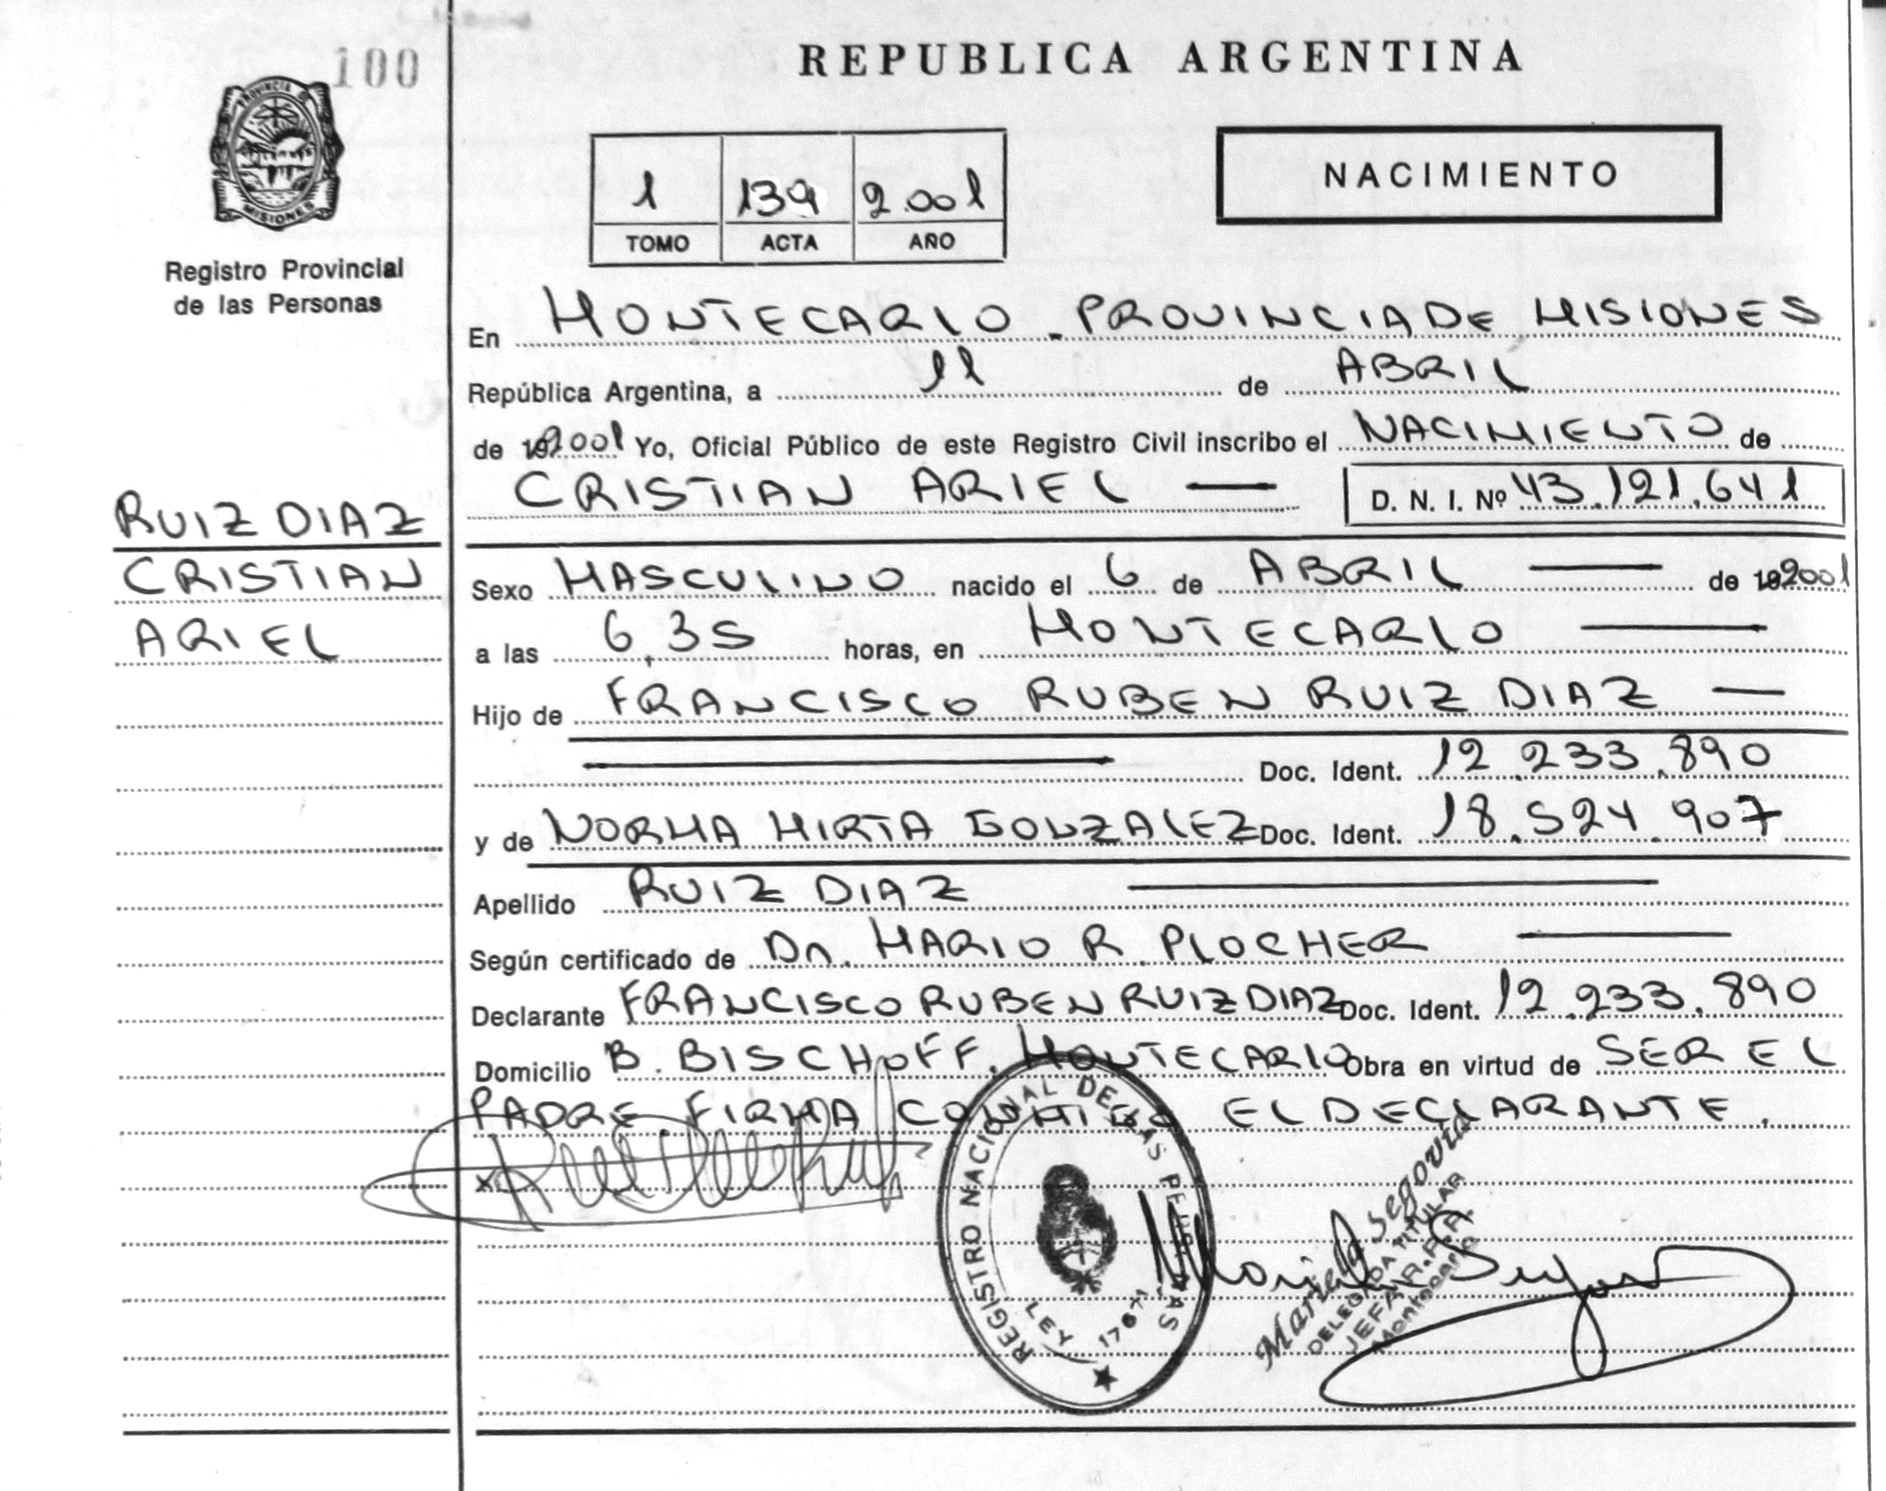 100
REPUBLICA ARGENTINA
PROVINCIA DE MISIONES
1 139 2.001
TOMO ACTA AÑO
NACIMIENTO
Registro Provincial
de las Personas
En MONTECARLO. PROVINCIA DE MISIONES
República Argentina, a 11 de ABRIL
de 192001 Yo, Oficial Público de este Registro Civil inscribo el NACIMIENTO de
CRISTIAN ARIEL — D. N. I. Nº 43.121.641
RUIZ DIAZ
CRISTIAN
ARIEL
Sexo MASCULINO nacido el 6 de ABRIL — de 192001
a las 6,35 horas, en MONTECARLO —
Hijo de FRANCISCO RUBEN RUIZ DIAZ —
— Doc. Ident. 12.233.890
y de NORMA MIRTA GONZALEZ Doc. Ident. 18.524.907
Apellido RUIZ DIAZ —
Según certificado de Dr. MARIO R. PLOCHER —
Declarante FRANCISCO RUBEN RUIZ DIAZ Doc. Ident. 12.233.890
Domicilio B. BISCHOFF. MONTECARLO Obra en virtud de SER EL
PADRE. FIRMA CONMIGO EL DECLARANTE.
REGISTRO NACIONAL DE LAS PERSONAS
LEY 17671
Mariela Segovia
DELEGADA TITULAR
Montecarlo